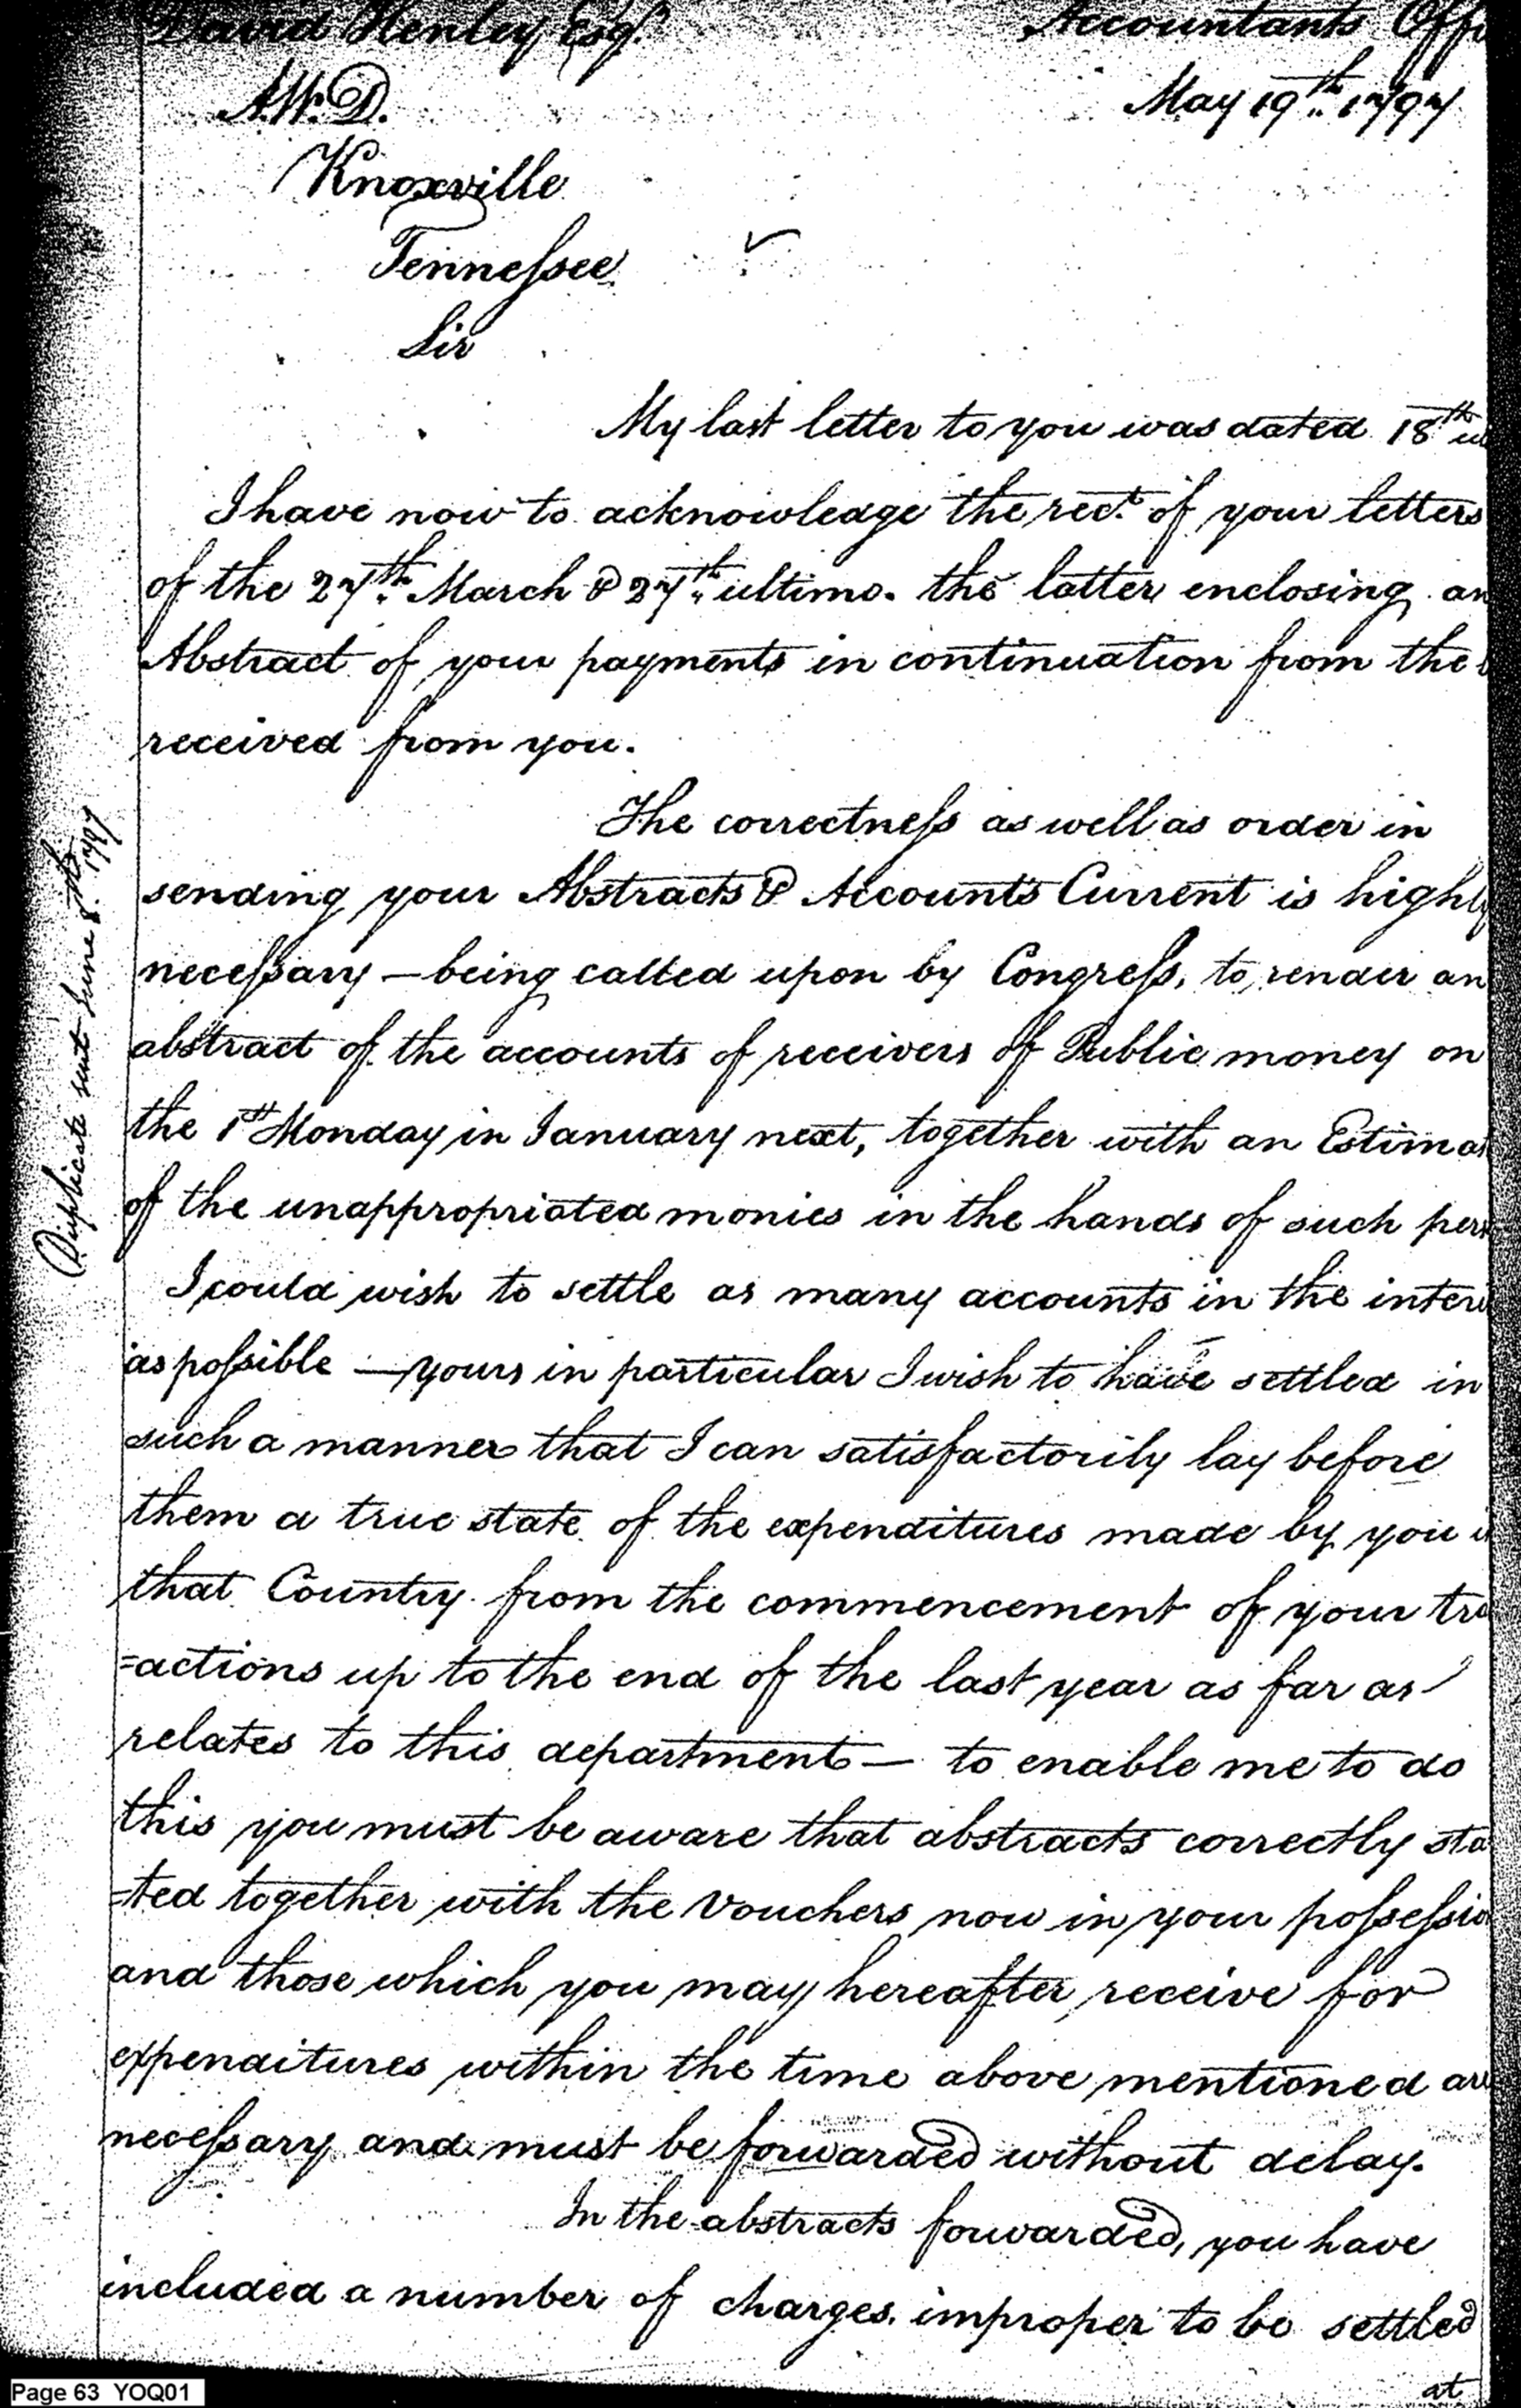 David Henley Esqr. Accountants Offi
A.W.D. May 19th. 1797
Knoxville
Tennessee
Sir
My last letter to you was dated 18th ul
I have now to acknowledge the rect. of your letters
of the 27th. March & 27th. ultimo. the latter enclosing an
Abstract of your payments in continuation from the l
received from you.
The correctness as well as order in
sending your Abstracts & Accounts Current is highly
necessary — being called upon by Congress, to render an
abstract of the accounts of receivers of Public money on
the 1st Monday in January next, together with an Estimat
of the unappropriated monies in the hands of such pers
I could wish to settle as many accounts in the interi
as possible — yours in particular I wish to have settled in
such a manner that I can satisfactorily lay before
them a true state of the expenditures made by you i
that Country from the commencement of your tra
=actions up to the end of the last year as far as
relates to this department — to enable me to do
this you must be aware that abstracts correctly sta
=ted together with the vouchers now in your possessio
and those which you may hereafter receive for
expenditures within the time above mentioned are
necessary and must be forwarded without delay.
In the abstracts forwarded, you have
included a number of charges improper to be settled
at
Duplicate sent June 8th. 1797
Page 63 YOQ01